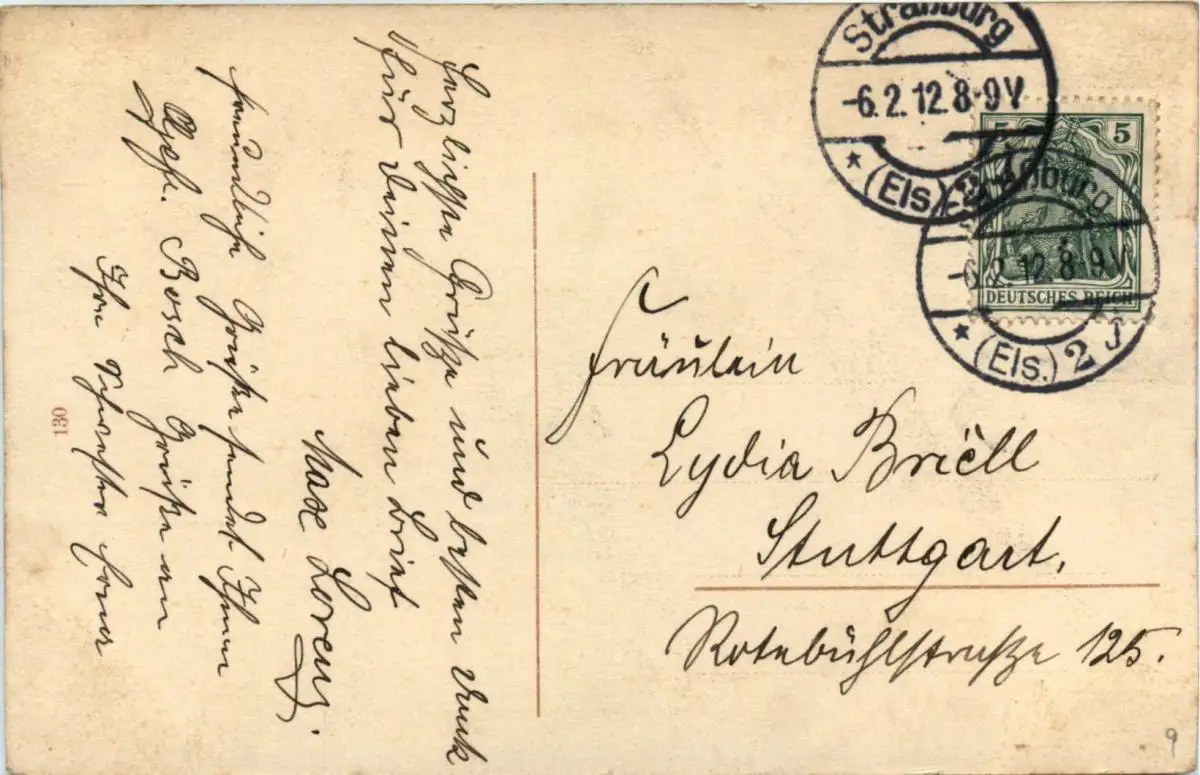 Herzlichste Grüße und besten Dank
für Deinen lieben Brief
Max Lorenz.
freundliche Grüße sendet Ihnen
Gesch. Bosch Grüße an
Ihre Schwester
130
Straßburg
-6.2.12.8-9V
* (Els.) 2
Straßburg
-6.2.12.8-9V
* (Els.) 2 j
5 5
DEUTSCHES REICH
Fräulein
Lydia Briell
Stuttgart,
Rotebühlstraße 125.
9